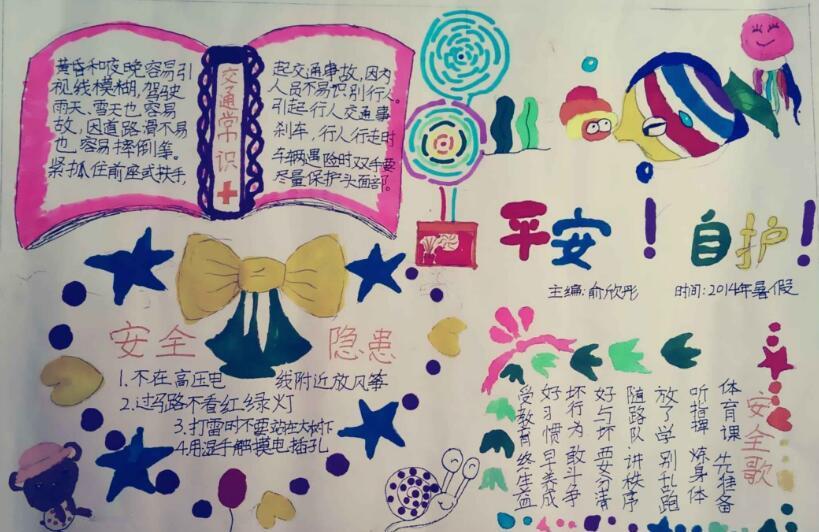 黄昏和夜晚容易引
视线模糊,驾驶
雨天、雪天也容易
故,因道路滑不易
也容易摔倒等。
紧抓住前座或扶手,
交通常识
起交通事故,因为
人员不易识别行人。
引起行人交通事
刹车,行人行走时
车辆遇险时双手要
尽量保护头面部。
平安! 自护!
主编:俞欣彤 时间:2014年暑假
安全隐患
1.不在高压电线附近放风筝
2.过马路不看红绿灯
3.打雷时不要站在大树下
4.用湿手触摸电插孔
安全歌
体育课 先准备
听指挥 炼身体
放了学 别乱跑
随路队 讲秩序
好与坏 要分清
坏行为 敢斗争
好习惯 早养成
受教育 终生益